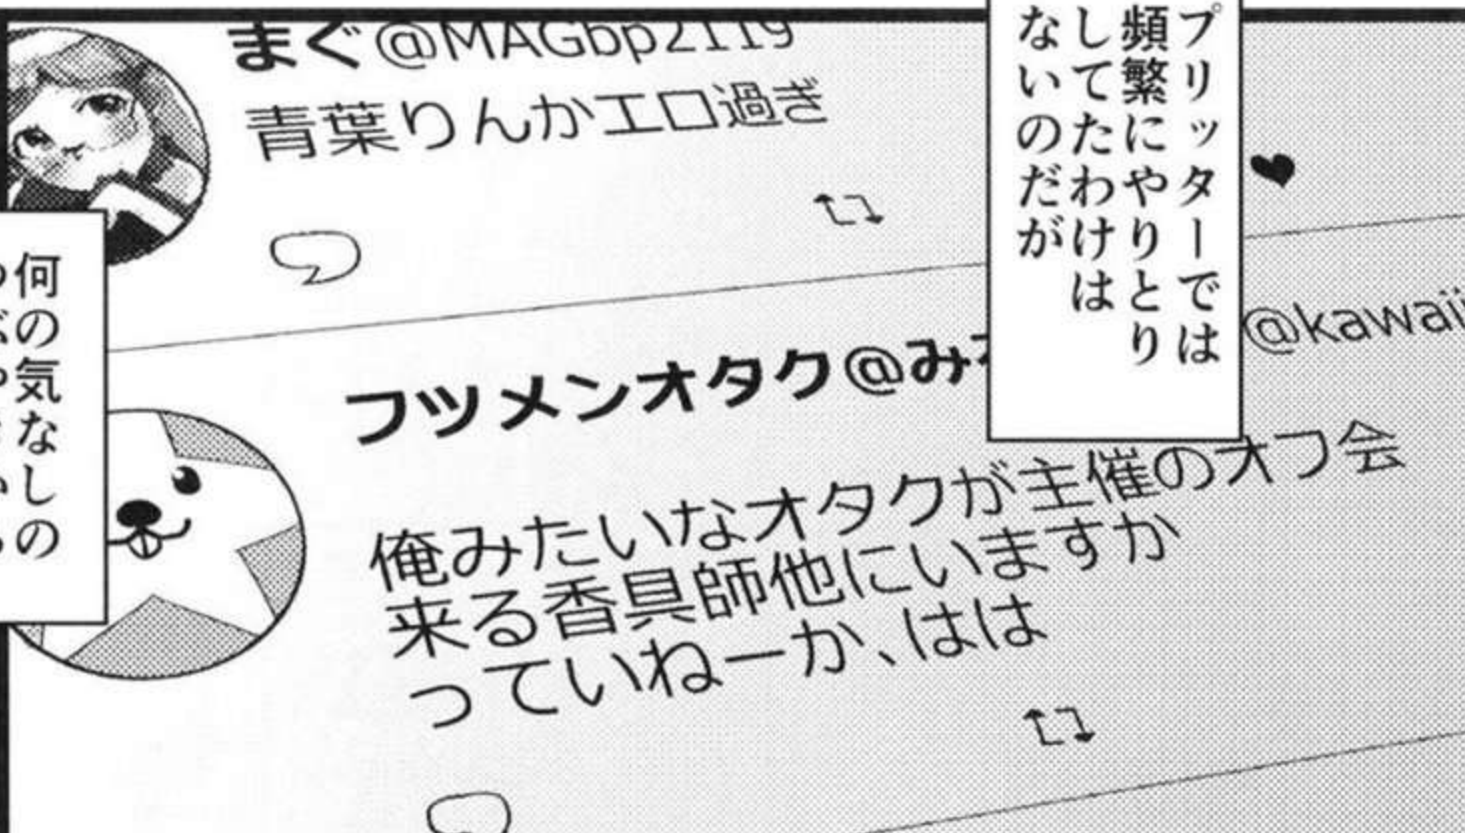 プリッターでは
頻繁にやりとり
してたわけは
ないのだが
まぐ@MAGbp2119
青葉りんかエロ過ぎ
フツメンオタク@み
@kawaii
俺みたいなオタクが主催のオフ会
来る香具師他にいますか
っていねーか、はは
何の気なしの